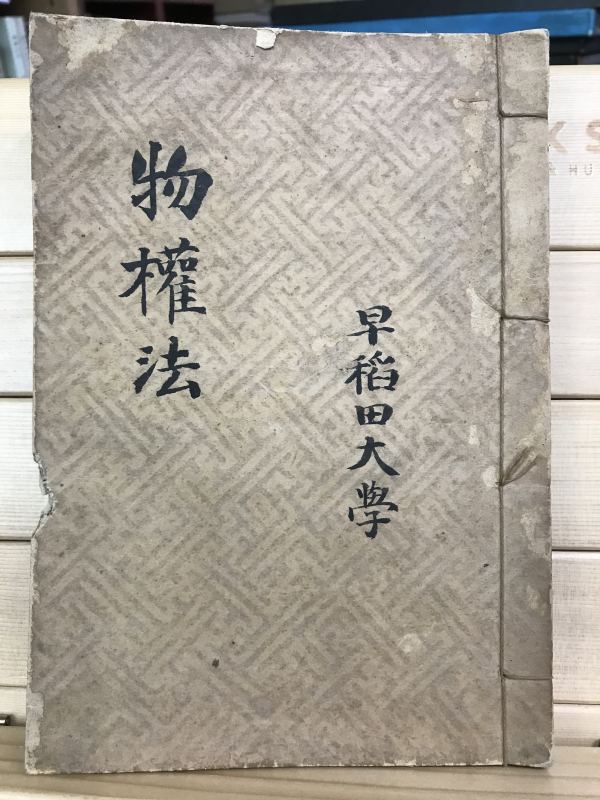 早稻田大學
物權法